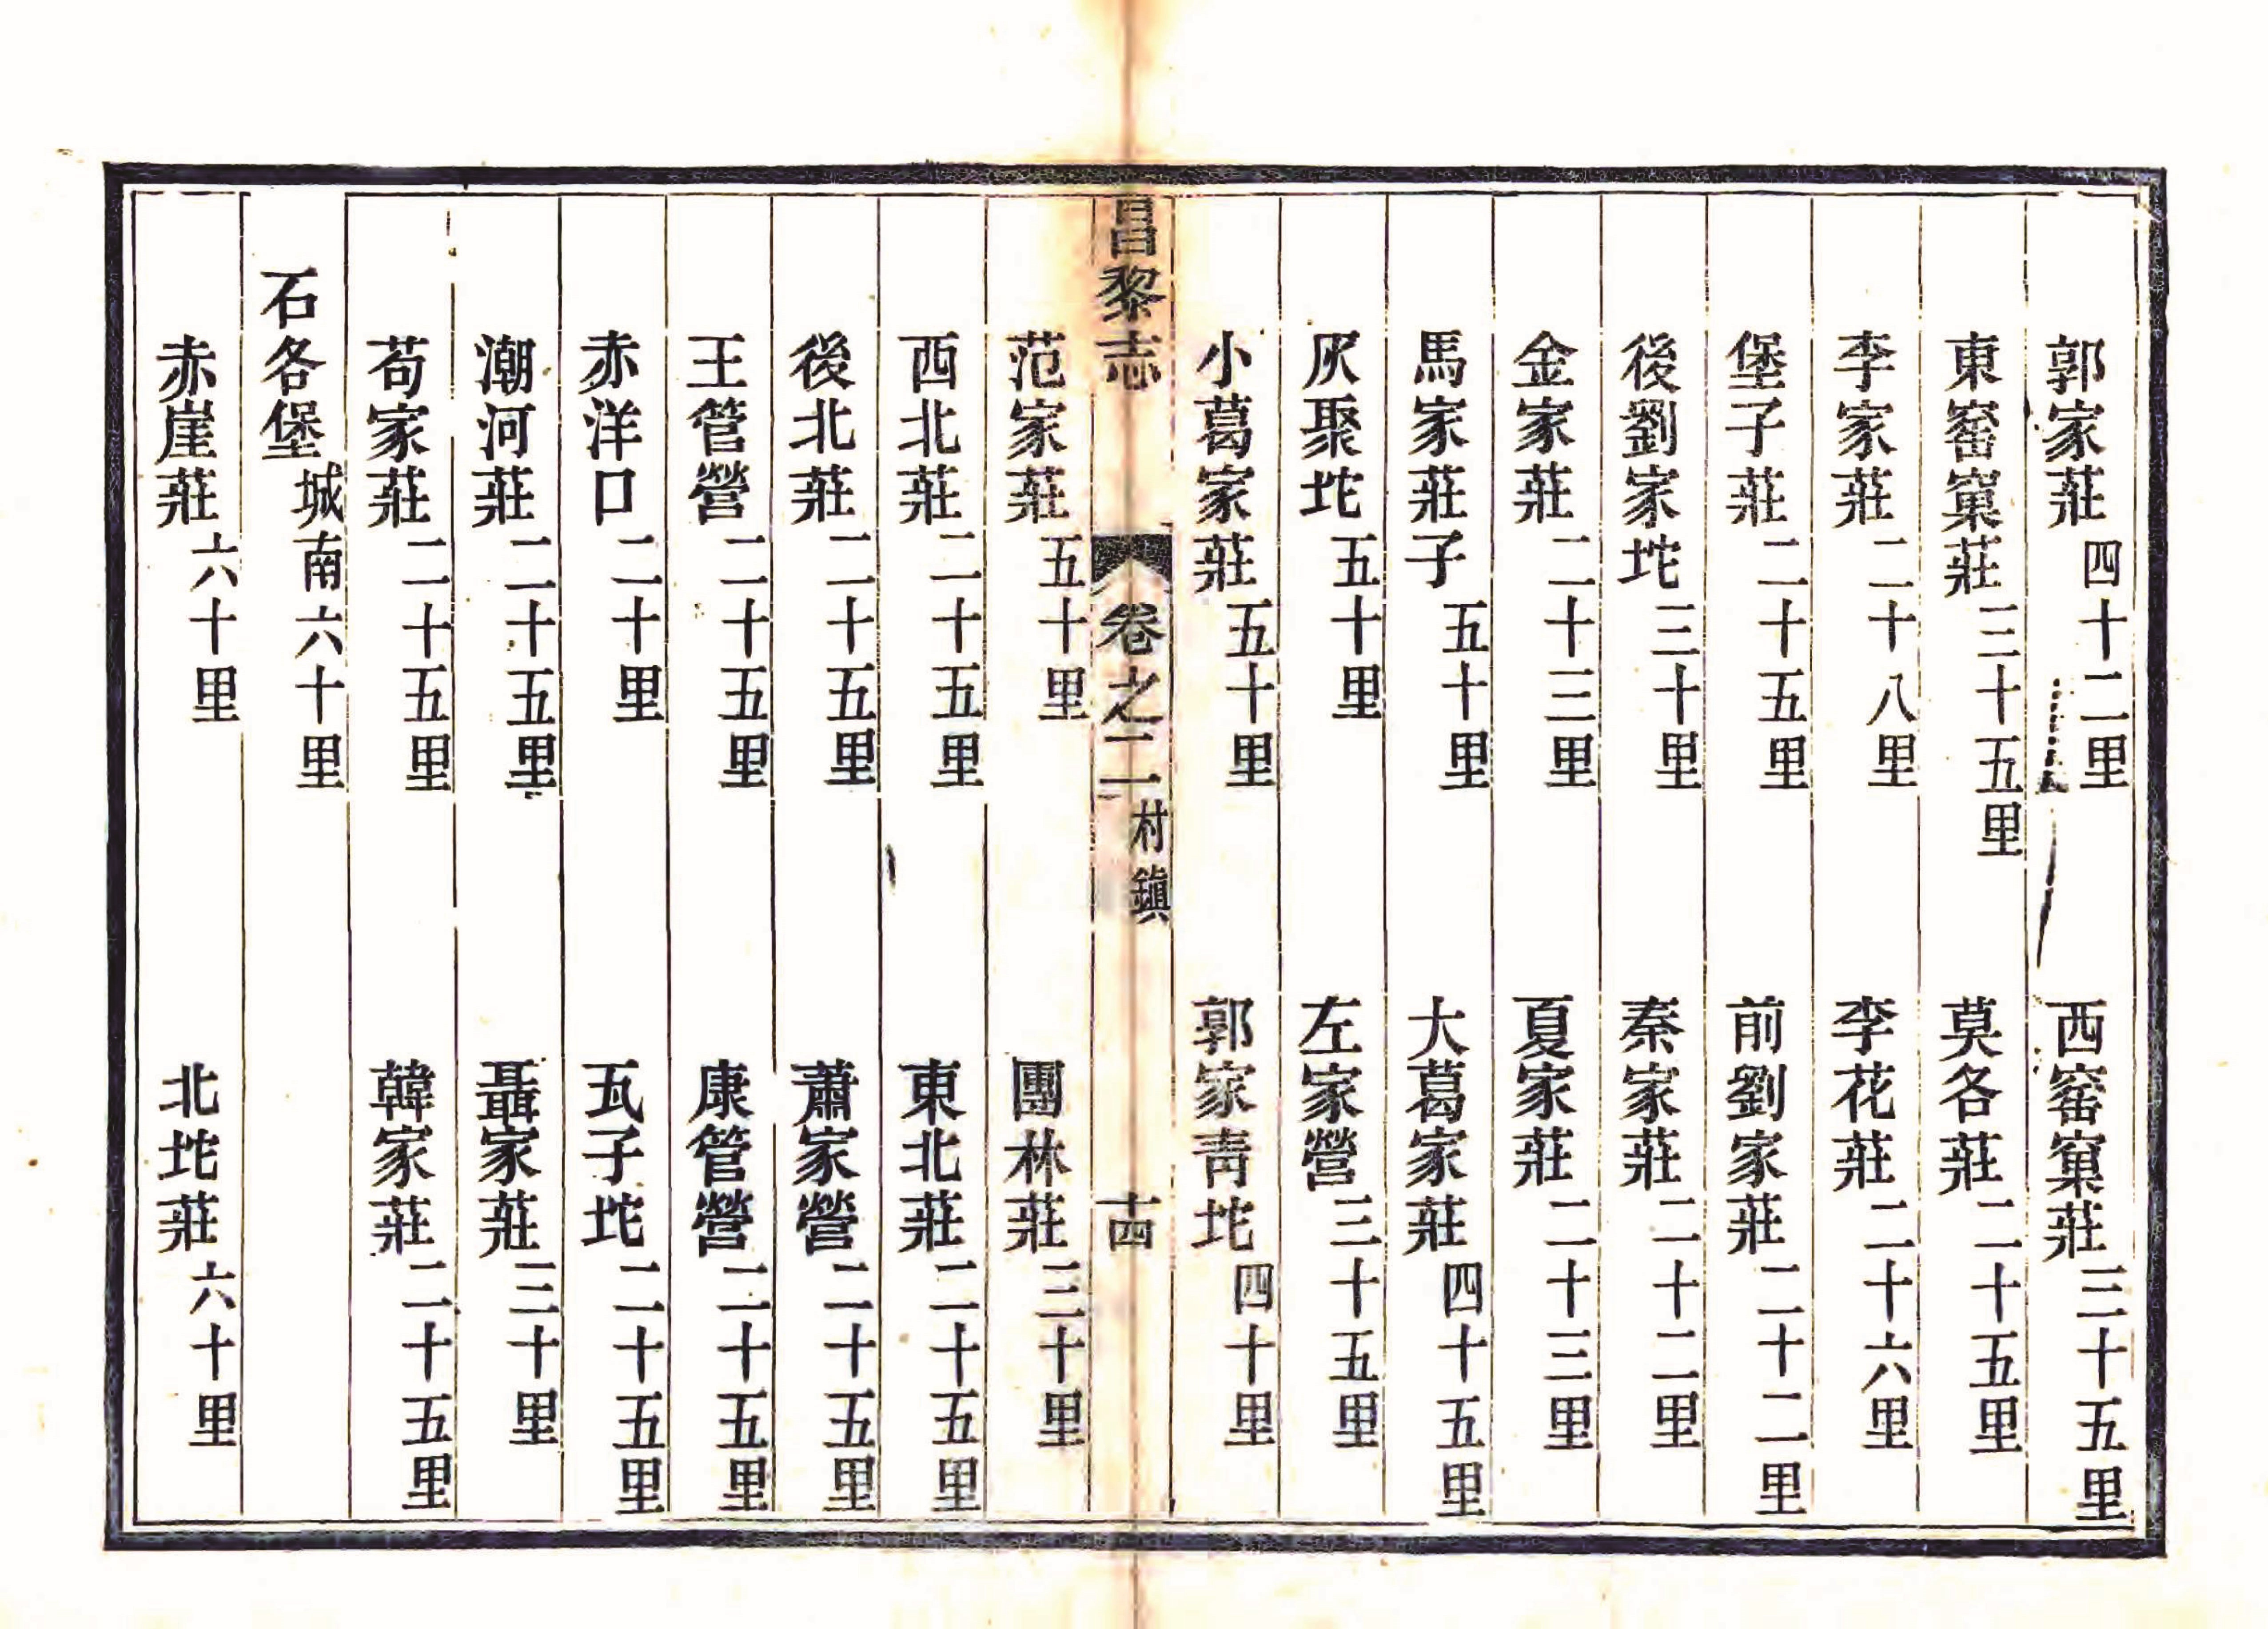 郭家莊四十二里　西窑窠莊三十五里
東窑窠莊三十五里　莫各莊二十五里
李家莊二十八里　李花莊二十六里
堡子莊二十五里　前劉家莊二十二里
後劉家坨三十里　秦家莊二十二里
金家莊二十三里　夏家莊二十三里
馬家莊子五十里　大葛家莊四十五里
灰聚坨五十里　左家營三十五里
小葛家莊五十里　郭家靑坨四十里
昌黎志　卷之二　村鎭　十四
范家莊五十里　團林莊三十里
西北莊二十五里　東北莊二十五里
後北莊二十五里　蕭家營二十五里
王管營二十五里　康管營二十五里
赤洋口二十里　瓦子坨二十五里
潮河莊二十五里　聶家莊三十里
苟家莊二十五里　韓家莊二十五里
石各堡城南六十里
赤崖莊六十里　北坨莊六十里